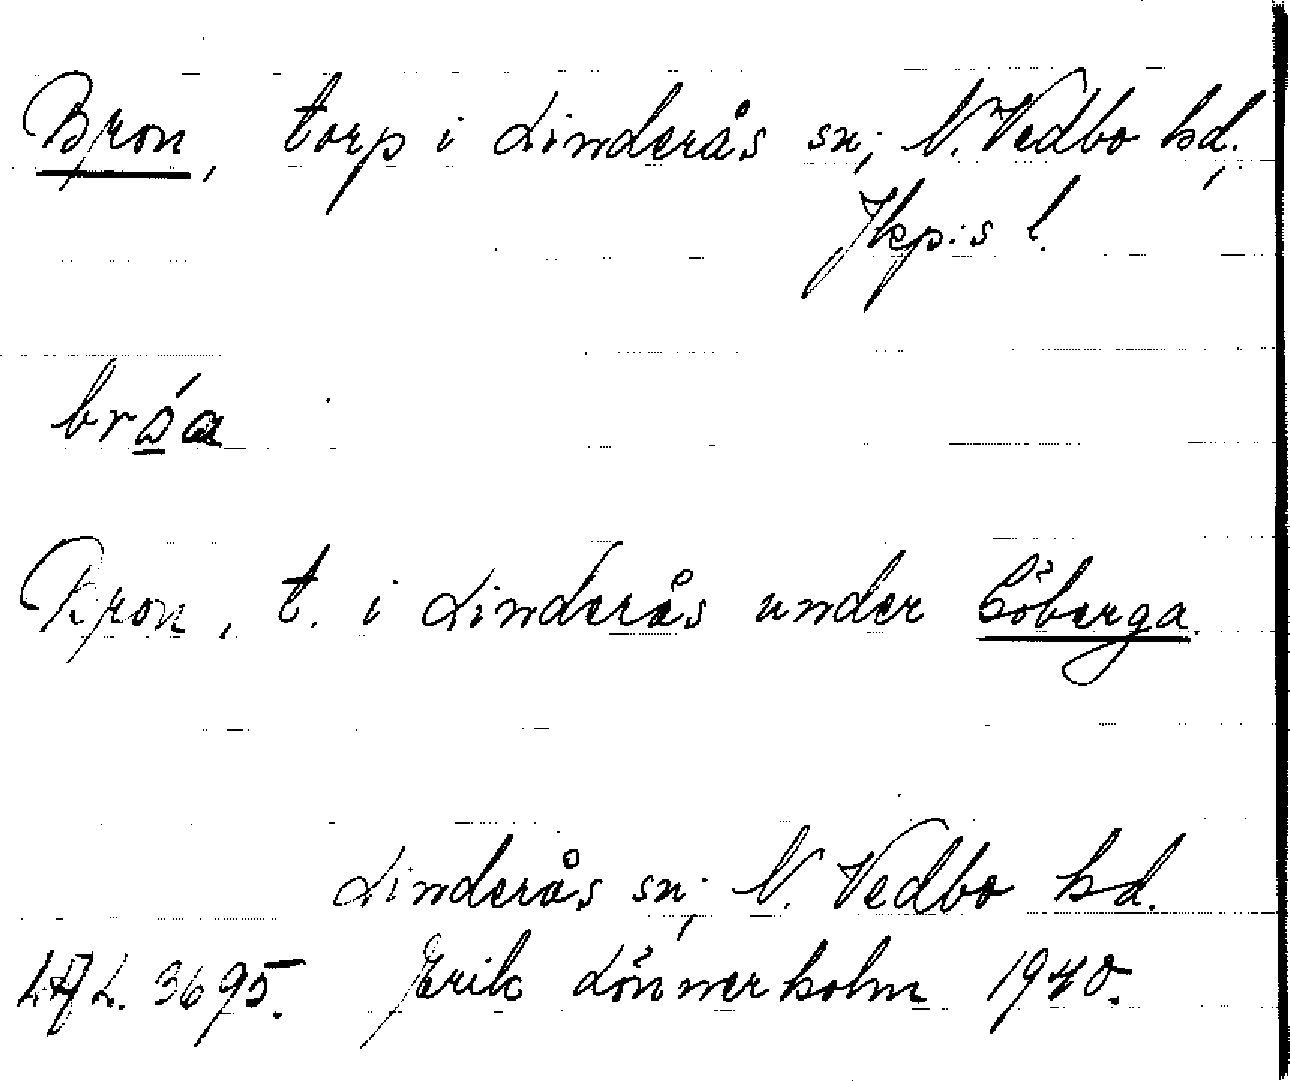 Bron, torp i Linderås sn; N. Vedbo hd,
Jkp:s l.
bróa
Bron, t. i Linderås under Cöberga.
Linderås sn; N. Vedbo hd.
3695. Erik Lönnerholm 1940.